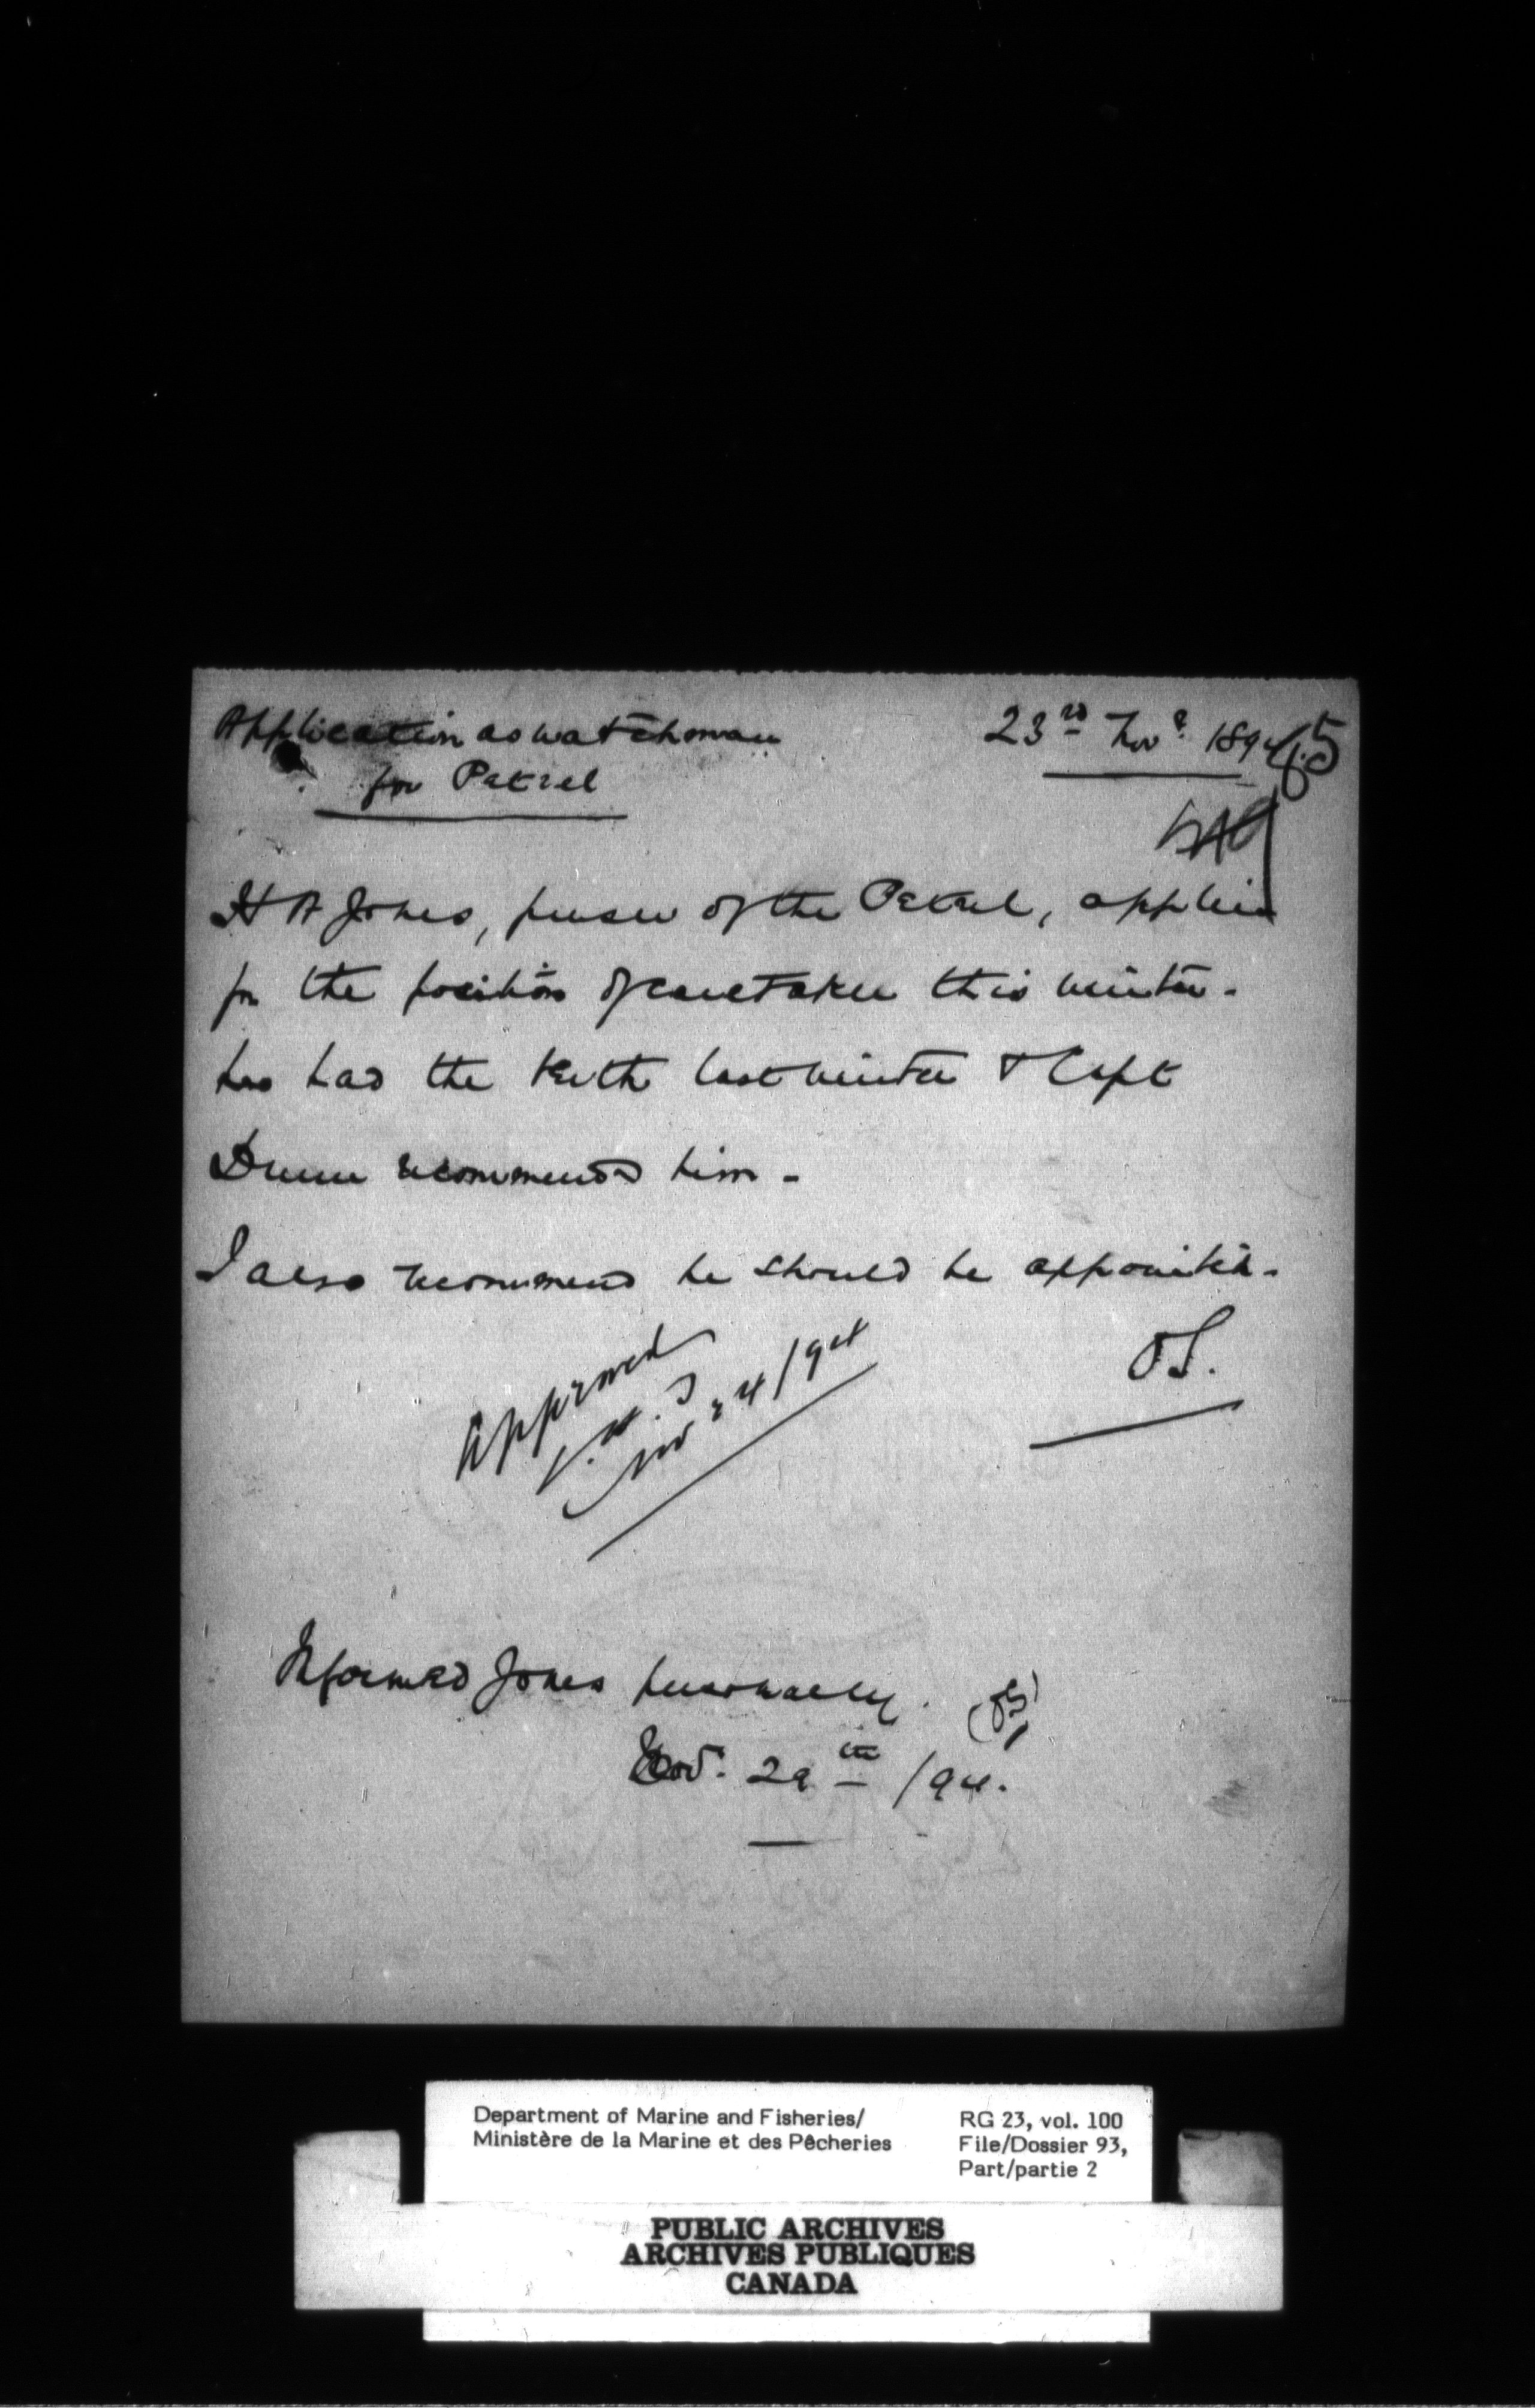 Application as watchman
for Petrel
23rd Novr 1894
H A Jones, purser of the Petrel, applies
for the position of caretaker this winter.
has had the berth last winter & Capt
Dunn recommends him -
I also recommend he should be appointed.
OS.
Approved
Nov 24/94
Informed Jones personally. (OS)
Nov. 29th /94.
Department of Marine and Fisheries/
Ministère de la Marine et des Pêcheries
RG 23, vol. 100
File/Dossier 93,
Part/partie 2
PUBLIC ARCHIVES
ARCHIVES PUBLIQUES
CANADA